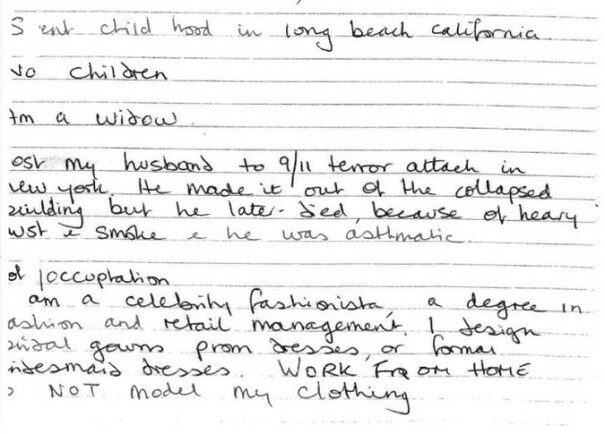 S ent child hood in long beach california
No children
Im a widow
ost my husband to 9/11 terror attach in
new york. He made it out of the collapsed
building but he later died, because of heavy
ust & smoke & he was asthmatic
occuptation
am a celebrity fashionista, a degree in
ashion and retail management. I design
bridal gowns prom dresses, or formal
ridesmaid dresses. WORK FROM HOME
NOT model my clothing